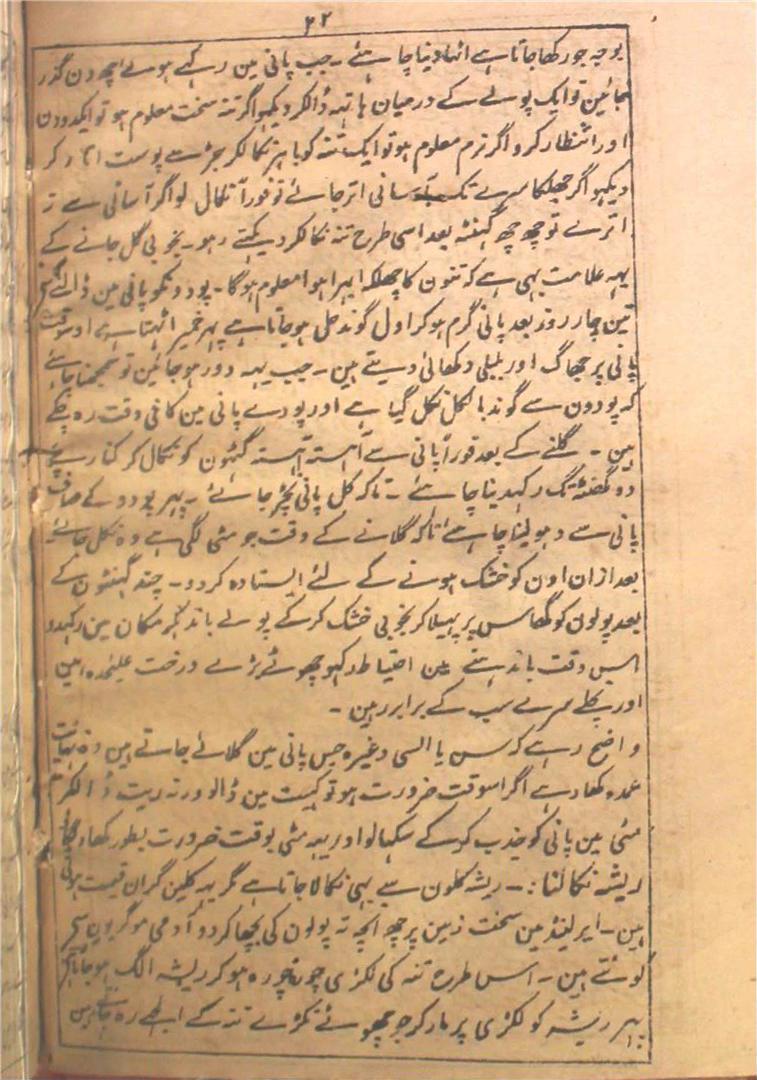 ۲۲
بوجہ جو رکھا جاتا ہے اٹھا دینا چاہئے ۔ جب پانی مین رکہے ہوئے اچھ دن گذر
جائین تو ایک پولے کے درمیان ہاتہہ ڈالکر دیکہو اگر تنہ سخت معلوم ہو تو ایکدو دن
اور انتظار کرو اگر نرم معلوم ہو تو ایک تنہ کو باہر نکالکر جڑ سے پوست اتار کر
دیکہو اگر چھلکا سرے تک بآسانی اتر جائے تو فوراً نکال لو اگر آسانی سے نہ
اترے تو چھ چھ گہنٹہ بعد اسی طرح تنہ نکالکر دیکہتے رہو ۔ بخوبی گل جانے کے
یہہ علامت بہی ہے کہ تنون کا چھلکہ ابہرا ہوا معلوم ہوگا ۔ پودونکو پانی مین ڈالنے کے
تین چار روز بعد پانی گرم ہو کر اول گوند حل ہو جاتا ہے پہر خمیر اٹہتا ہے اوسوقت
پانی پر جھاگ اور بلبلی دکھائی دیتے ہین ۔ جب یہہ دور ہو جائین تو سمجھنا چاہئے
کہ پودون سے گوند بالکل نکل گیا ہے اور پودے پانی مین کافی وقت رہ چکے
ہین ۔ گلنے کے بعد فوراً پانی سے آہستہ آہستہ گٹہون کو نکال کر کنارے پر
دو گھنٹہ تک رکہدینا چاہئے ۔ تاکہ کل پانی نچڑ جائے ۔ پہر پودو کے صاف
پانی سے دہو لینا چاہئے تاکہ گلانے کے وقت جو مٹی لگی ہے وہ نکل جائے
بعد ازان اون کو خشک ہونے کے لئے ایستادہ کر دو ۔ چند گہنٹون کے
بعد پولون کو گھاس پر پہیلا کر بخوبی خشک کر کے پولے باندہکر مکان مین رکہدو
اس وقت باندہنے مین احتیاط رکہو چھوٹے بڑے درخت علیحدہ رہین
اور نچلے سرے سب کے برابر رہین ۔
واضح رہے کہ سن یا السی وغیرہ جس پانی مین گلائے جاتے ہین وہ نہایت
عمدہ کھاد ہے اگر اسوقت ضرورت ہو تو کہیت مین ڈالو ورنہ ریت ڈالکر
مٹی مین پانی کو جذب کر کے سکہالو اور یہہ مٹی بوقت ضرورت بطور کھاد
ریشہ نکالنا :۔ ریشہ کلون سے بہی نکالا جاتا ہے مگر یہہ کلین گران قیمت ہوتی
ہین ۔ ایرلینڈ مین سخت زمین پر چھ انچہ تہ پولون کی بچھا کر دو آدمی موگریون سے
کوٹتے ہین ۔ اس طرح تنہ کی لکڑی چورہ چورہ ہو کر ریشہ الگ ہو جاتا ہے
پہر ریشہ کو لکڑی پر مار کر جو چھوٹے ٹکڑے تنہ کے رہ جاتے ہین